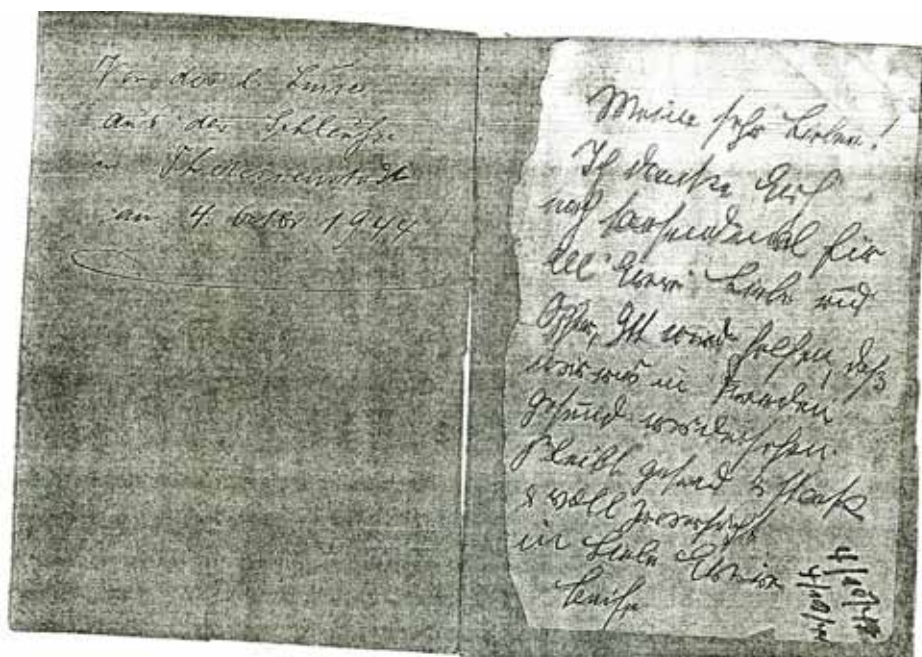 Von der l. Luise
aus der Schleuse
in Theresienstadt
am 4. Oktbr 1944
Meine sehr Lieben!
Ich danke Euch
noch tausendmal für
all' Eure Liebe und
Opfer, Gott wird helfen, daß
wir uns in Frieden
gesund wiedersehen.
Bleibt gesund & stark
& voll Zuversicht
in Liebe Eure
Luise
4/10/44
4/10/44